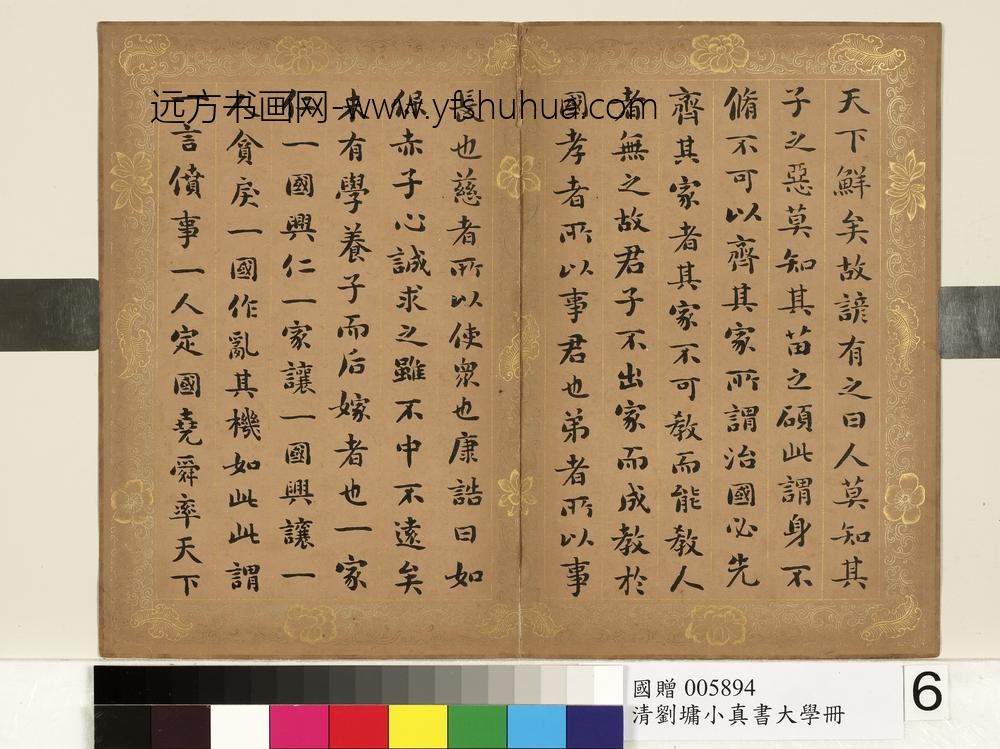 天下鮮矣故諺有之曰人莫知其
子之惡莫知其苗之碩此謂身不
脩不可以齊其家所謂治國必先
齊其家者其家不可教而能教人
者無之故君子不出家而成教於
國孝者所以事君也弟者所以事
長也慈者所以使眾也康誥曰如
保赤子心誠求之雖不中不遠矣
未有學養子而后嫁者也一家
仁一國興仁一家讓一國興讓一
人貪戾一國作亂其機如此此謂
一言僨事一人定國堯舜率天下
远方书画网-www.yfshuhua.com
國贈 005894
清劉墉小真書大學冊
6